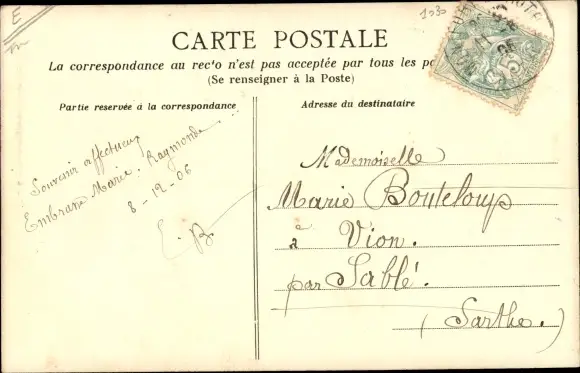 E
1030
CARTE POSTALE
La correspondance au recto n'est pas acceptée par tous les
(Se renseigner à la Poste)
Partie reservée à la correspondance
Adresse du destinataire
Souvenir affectueux
Marie. Raymonde
8-12-06
E. B.
Mademoiselle
Marie Bouteloup
à Vion.
par Sablé.
(Sarthe.)
5